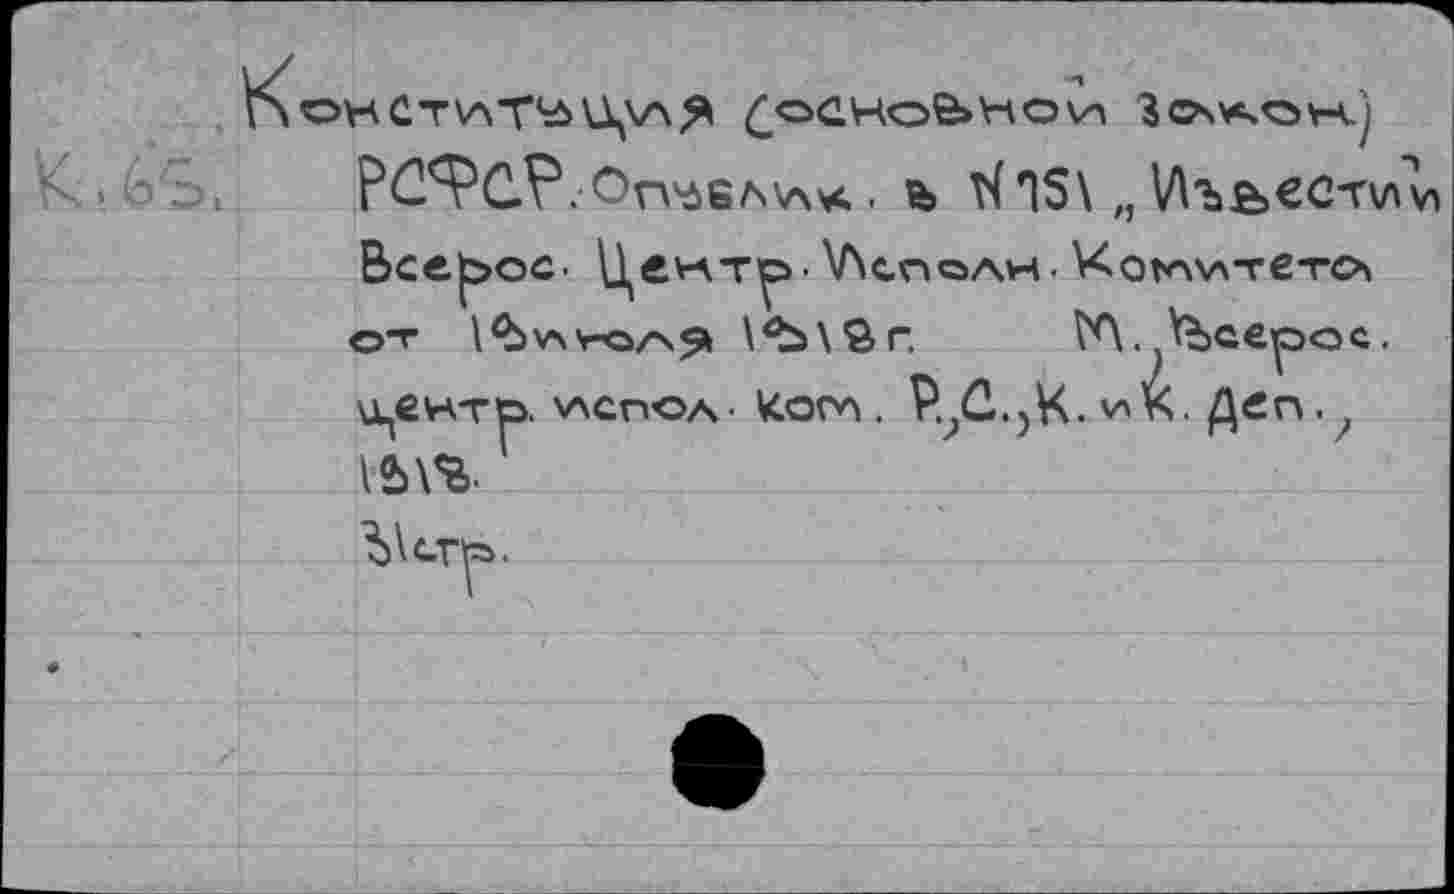 Конституция (основной закон)
К. 65. РСФСР. Опублик. в №151 „Известий
Всерос. Центр. Исполн. Комитета
от 19 июля 1918 г. М., Всерос.
центр. испол. ком. Р., С., К. и К. Деп.,
1918.
31 стр.